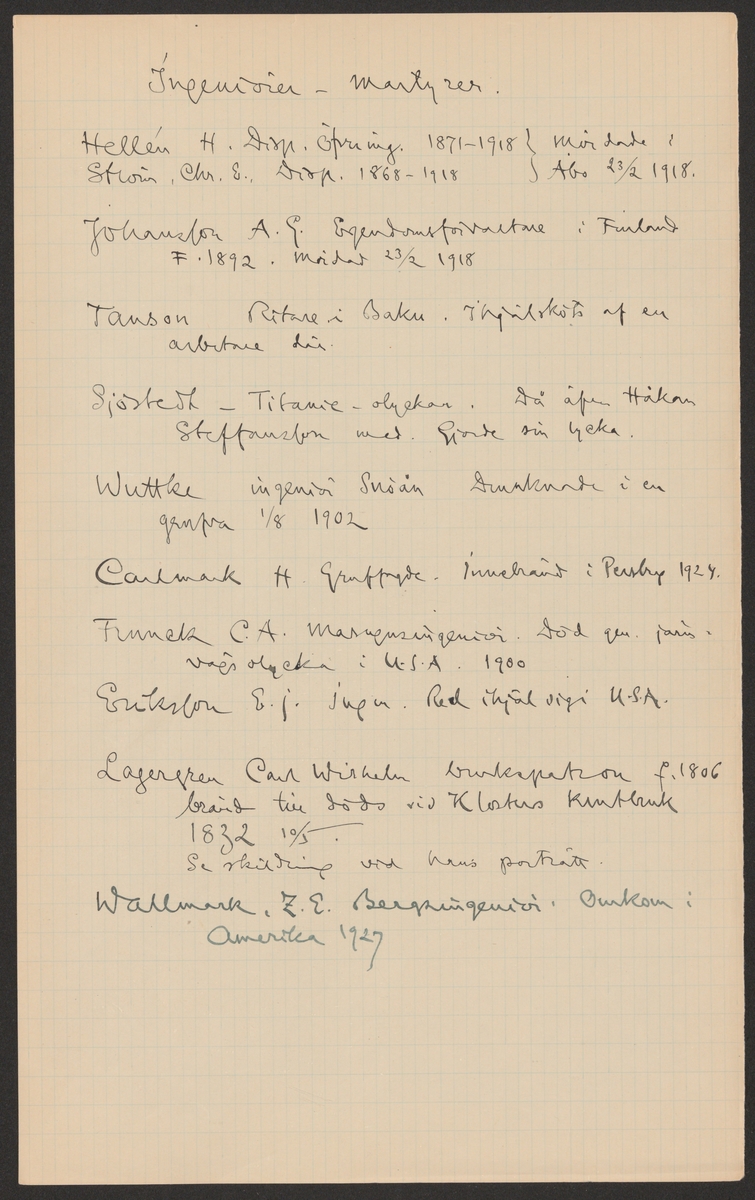 Ingeniörer – martyrer.
Hellén H. Disp. Öfvering. 1871–1918 } Mördade i
Ström, Chr. E., Disp. 1868–1918 } Åbo 23/2 1918.
Johansson A. G. Egendomsförvaltare i Finland
F. 1892. Mördad 23/2 1918
Tanson Ritare i Baku. Ihjälsköts af en
arbetare där.
Sjöstedt – Titanic-olyckan. Då äfven Håkan
Steffansson med. Gjorde sin lycka.
Wuttke ingeniör Snöån Drunknade i en
1/8 1902
Carlmark H. Gruffogde. Innebränd i Persberg 1924.
Funck C. A. Masugnsingeniör. Död gm. järn-
vägsolycka i U.S.A. 1900
Eriksson E. J. Ingen. Red ihjäl sig i U.S.A.
Lagergren Carl Wilhelm brukspatron f. 1806
bränd till döds vid Klosters krutbruk
1832 10/5.
Se skildring vid hans porträtt.
Wallmark, Z. E. Bergsingeniör. Omkom i
Amerika 1927